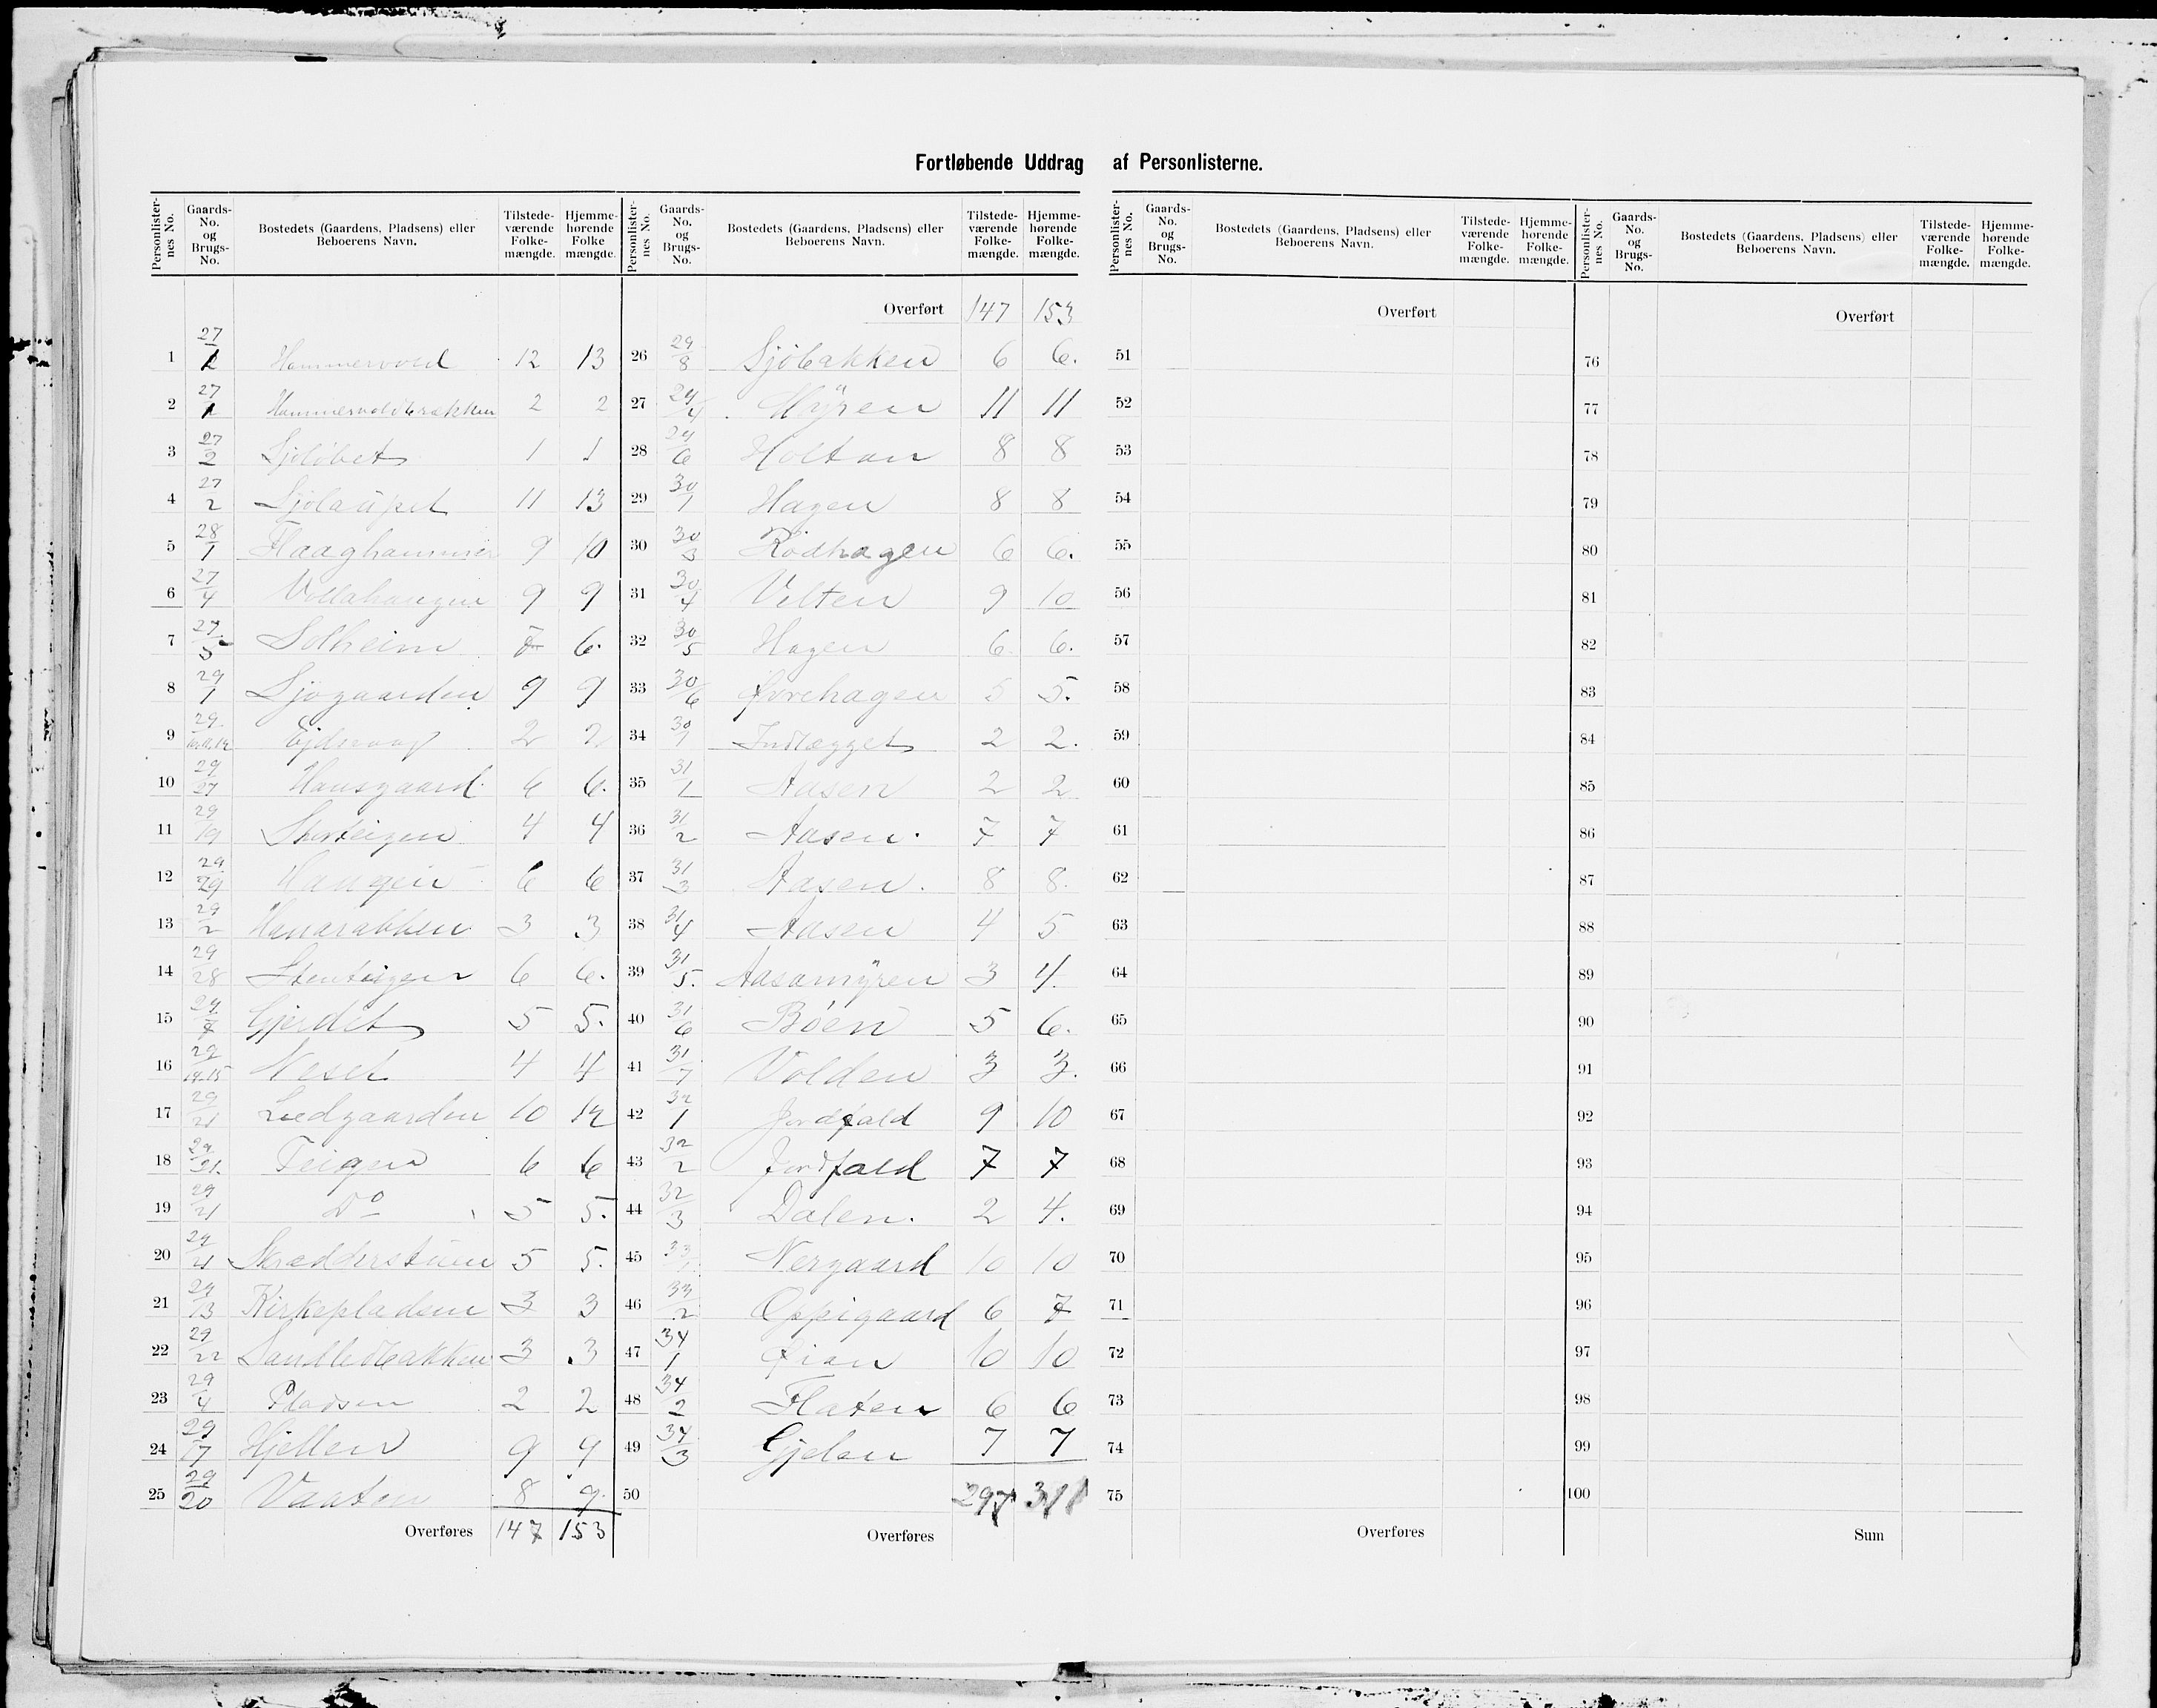 Fortløbende Uddrag af Personlisterne.
Personlisternes No. Gaards-No. og Brugs-No. Bostedets (Gaardens, Pladsens) eller Beboerens Navn. Tilstedeværende Folkemængde. Hjemmehørende Folke mængde.
1 27/1 Hammervold 12 13
2 27/1 Hammervoldbrækken 2 2
3 27/2 Sjoløbet 1 1
4 27/2 Sjolaüpet 11 13
5 28/1 Flaaghammer 9 10
6 27/4 Vollahaugen 9 9
7 27/5 Solheim 7 6.
8 29/1 Sjøgaarden 9 9
9 29/ Ejdsvaag 2 2
10 29/27 Hansgaard 6 6.
11 29/19 Storteigen 4 4
12 29/29 Haugen 6 6
13 29/2 Hanarabben 3 3
14 29/28 Stenteigen 6 6.
15 29/7 Gjerdet 5 5.
16 29/14.15 Neset 4 4
17 29/21 Ledgaarden 10 12
18 29/21. Teigen 6 6
19 29/21 Do 5 5.
20 29/21 Skrædderstuen 5 5.
21 29/13 Kirkepladsen 3 3
22 29/22 3 3
23 29/4 Pladsen 2 2
24 29/17 Hjellen 9 9
25 29/20 Vaaten 8 9.
Overføres 147 153
Personlisternes No. Gaards-No. og Brugs-No. Bostedets (Gaardens, Pladsens) eller Beboerens Navn. Tilstedeværende Folkemængde. Hjemmehørende Folkemængde.
Overført 147 153
26 29/8 Sjöbakken 6 6.
27 29/4 Mÿren 11 11
28 29/6 Holtan 8 8
29 30/1 Hagen 8 8
30 30/3 Rødhagen 6 6.
31 30/4 Velten 9 10
32 30/5 Hagen 6 6.
33 30/6 Øvrehagen 5 5.
34 30/1 Indlægget 2 2.
35 31/1 Aasen 2 2
36 31/2 Aasen. 7 7
37 31/3 Aasen. 8 8.
38 31/4 Aasen 4 5
39 31/5. Aasamÿren 3 4.
40 31/6 Böen 5 6.
41 31/7 Volden 3 3.
42 32/1 Jordfald 9 10
43 32/2 Jordfald 7 7
44 32/3 Dalen. 2 4.
45 33/1 Nergaard 10 10
46 33/2 Oppigaard 6 7
47 34/1 Øian 10 10
48 34/2 Flaten 6 6
49 34/3 Gjelan 7 7
50 297 311
Overføres
Personlisternes No. Gaards-No. og Brugs-No. Bostedets (Gaardens, Pladsens) eller Beboerens Navn. Tilstedeværende Folkemængde. Hjemmehørende Folkemængde.
Overført
51
52
53
54
55
56
57
58
59
60
61
62
63
64
65
66
67
68
69
70
71
72
73
74
75
Overføres
Personlisternes No. Gaards-No. og Brugs-No. Bostedets (Gaardens, Pladsens) eller Beboerens Navn. Tilstedeværende Folkemængde. Hjemmehørende Folkemængde.
Overført
76
77
78
79
80
81
82
83
84
85
86
87
88
89
90
91
92
93
94
95
96
97
98
99
100
Sum